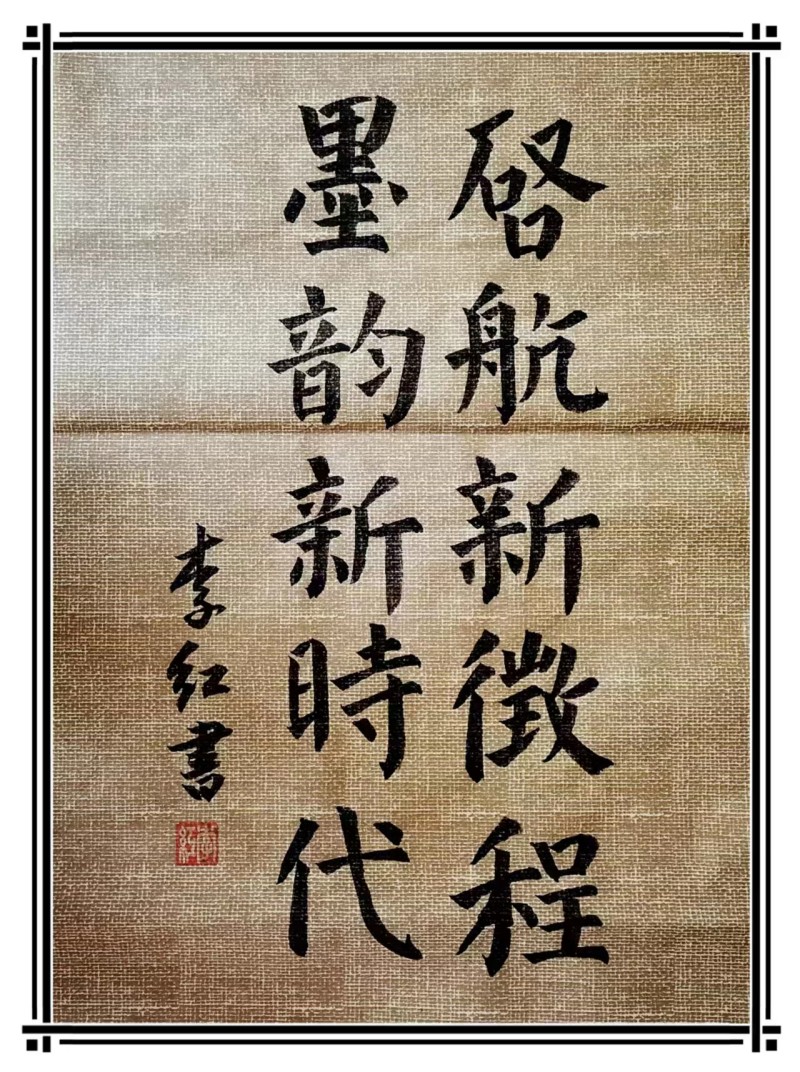 啓航新徵程
墨韵新時代
李红書
李紅